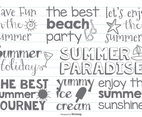 Have Fun
in the
Sun
the best
beach
party
let's
enjoy
the
summer
summer
holidays
SUMMER
PARADISE
THE BEST
summer
JOURNEY
yummy
ice
cream
enjoy the
summer
sunshine